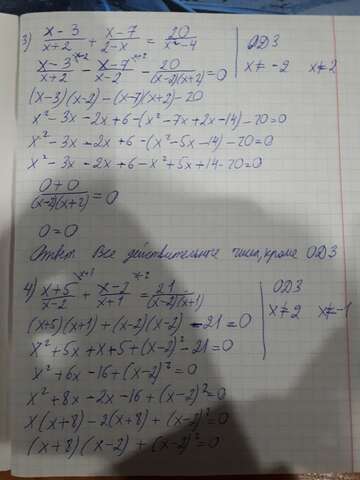 3) (x-3)/(x+2) + (x-7)/(2-x) = 20/(x²-4) ОДЗ
(x-3)/(x+2) - (x-7)/(x-2) - 20/((x-2)(x+2)) = 0 x≠-2 x≠2
(x-3)(x-2) - (x-7)(x+2) - 20
x² - 3x - 2x + 6 - (x² - 7x + 2x - 14) - 20 = 0
x² - 3x - 2x + 6 - (x² - 5x - 14) - 20 = 0
x² - 3x - 2x + 6 - x² + 5x + 14 - 20 = 0
(0+0)/((x-2)(x+2)) = 0
0 = 0
Ответ Все действительные числа, кроме ОДЗ
4) (x+5)/(x-2) + (x-2)/(x+1) = 21/((x-2)(x+1)) ОДЗ
(x+5)(x+1) + (x-2)(x-2) - 21 = 0 x≠2 x≠-1
x² + 5x + x + 5 + (x-2)² - 21 = 0
x² + 6x - 16 + (x-2)² = 0
x² + 8x - 2x - 16 + (x-2)² = 0
x(x+8) - 2(x+8) + (x-2)² = 0
(x+8)(x-2) + (x-2)² = 0